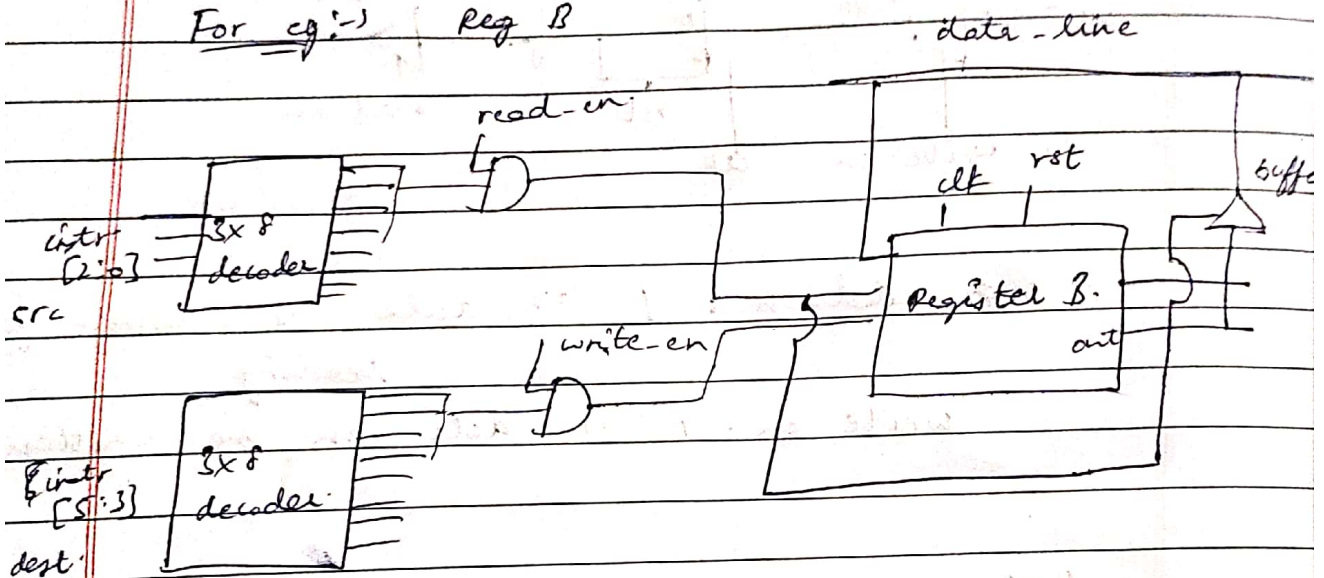 For eg:-) Reg B
data-line
read-en.
clk
rst
buffe
intr
[2:0]
src
3x8
decoder
Register B.
out
write-en
intr
[5:3]
dest.
3x8
decoder.